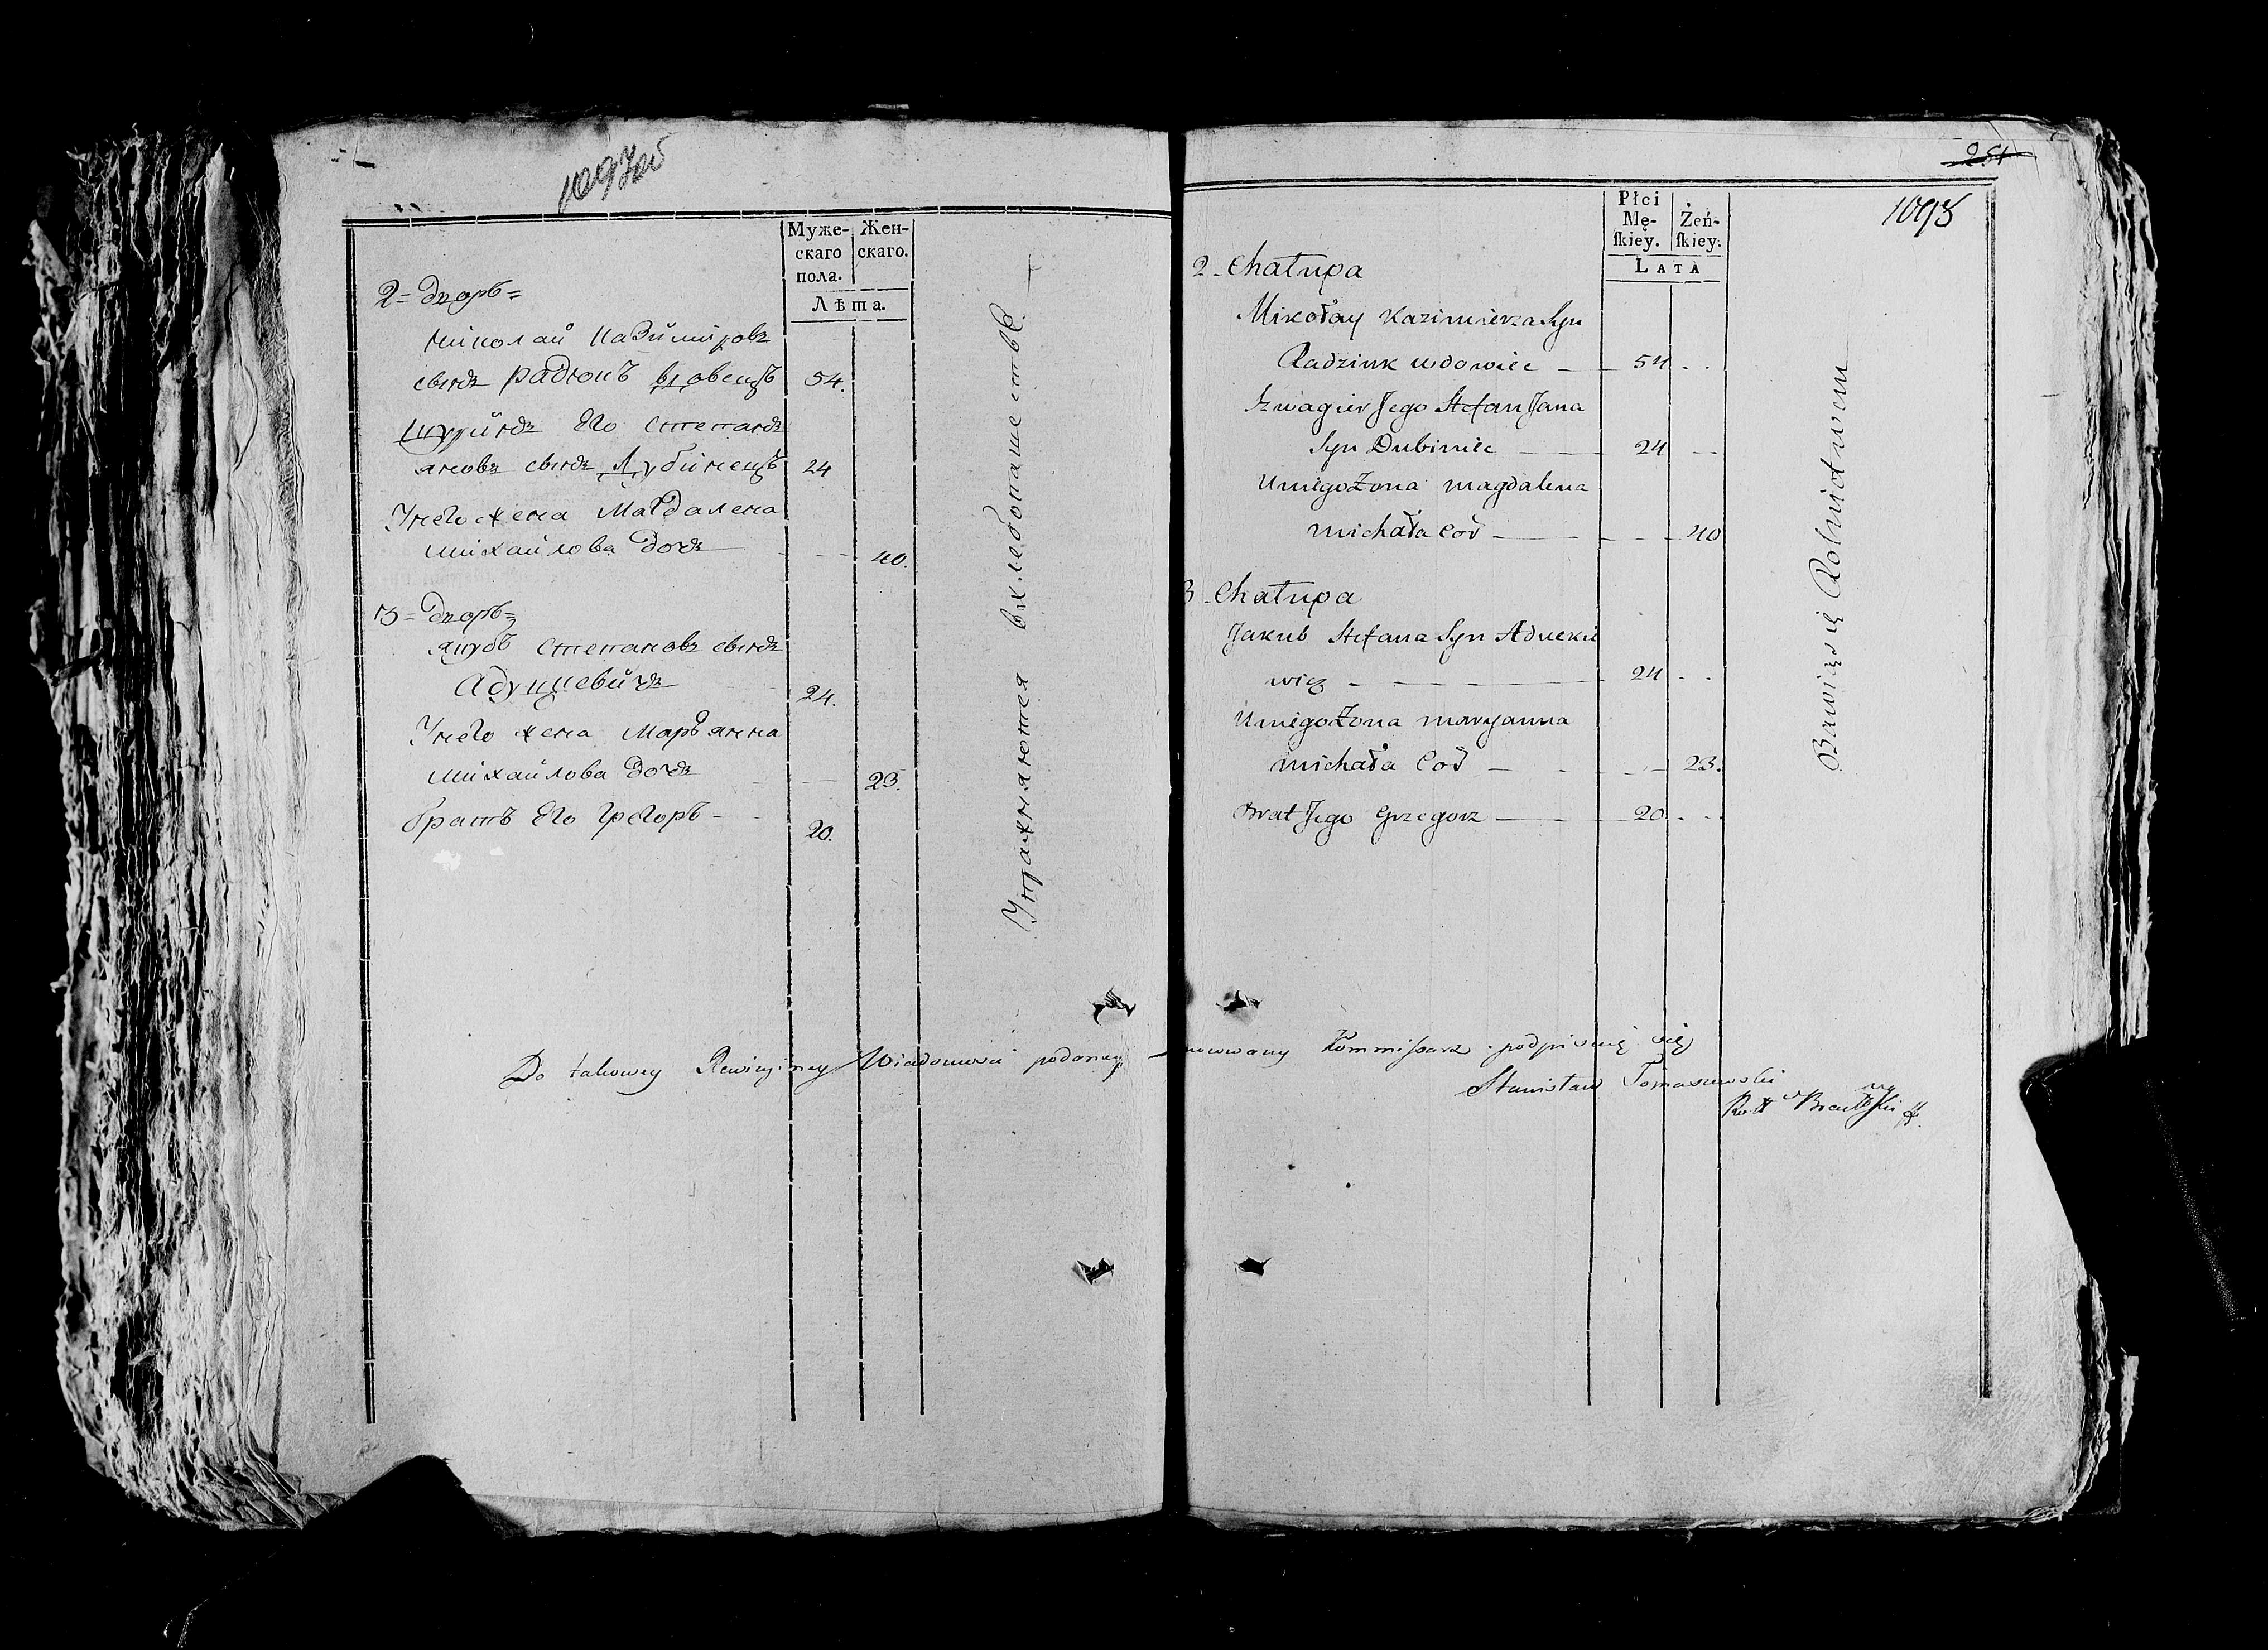 1097об
Муже- Жен-
скаго скаго.
пола.
Лѣта.
2 = Дворъ =
Николай Казимировъ
сынъ Радюкъ вдовецъ 54.
Шуринъ Его Степанъ
Яновъ сынъ Дубинецъ 24
У него жена Магдалена
Михайлова дочь - - - 40.
3 = Дворъ =
Якубъ Степановъ сынъ
Адуцкевичъ 24.
У него жена Марьянна
Михайлова дочь - - - 23.
братъ Его Грегоръ - - 20.
Упражняются в хлебопашестве.
Do takowey Rewizyiney Wiadomości podaney
251
1098
Płci
Mę- Żeń-
skiey. skiey.
LATA
2 - Chałupa
Mikołay Kazimierza Syn
Radziuk wdowiec — 54 . .
Szwagier Jego Stefan Jana
Syn Dubiniec — 24 - -
U niego Żona Magdalena
Michała Cor — - - - 40
3 - Chałupa
Jakub Stefana Syn Aduckie
wicz - — 24 - -
U niego Żona Maryanna
Michała Cor — - - - 23.
Brat Jego Grzegorz — 20 . . .
Bawię się Rolnictwem
Kommissarz podpisuię się
Stanisław Tomaszewski